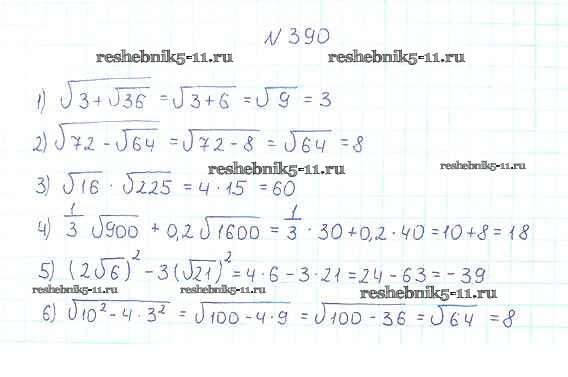 N 390
reshebnik5-11.ru reshebnik5-11.ru
1) √(3 + √36) = √(3+6) = √9 = 3
2) √(72 - √64) = √(72 - 8) = √64 = 8
reshebnik5-11.ru reshebnik5-11.ru
3) √16 · √225 = 4 · 15 = 60
4) 1/3 √900 + 0,2√1600 = 1/3 · 30 + 0,2 · 40 = 10 + 8 = 18
5) (2√6)² - 3(√21)² = 4 · 6 - 3 · 21 = 24 - 63 = - 39
reshebnik5-11.ru reshebnik5-11.ru reshebnik5-11.ru
6) √(10² - 4 · 3²) = √(100 - 4 · 9) = √(100 - 36) = √64 = 8